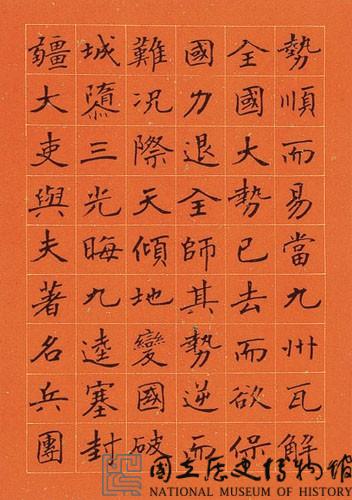 勢順而易當九州瓦解
全國大勢已去而欲保
國力退全師其勢逆而
難況際天傾地變國破
城隳三光晦九逵塞封
疆大吏與夫著名兵團
國立歷史博物館
NATIONAL MUSEUM OF HISTORY